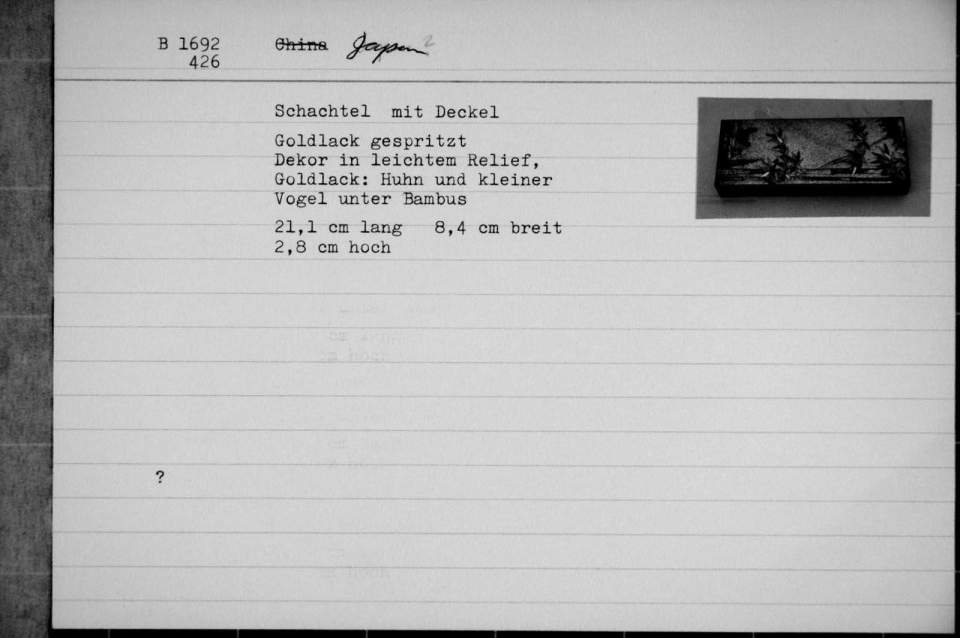 B 1692 China Japan ?
426
Schachtel mit Deckel
Goldlack gespritzt
Dekor in leichtem Relief,
Goldlack: Huhn und kleiner
Vogel unter Bambus
21,1 cm lang 8,4 cm breit
2,8 cm hoch
?